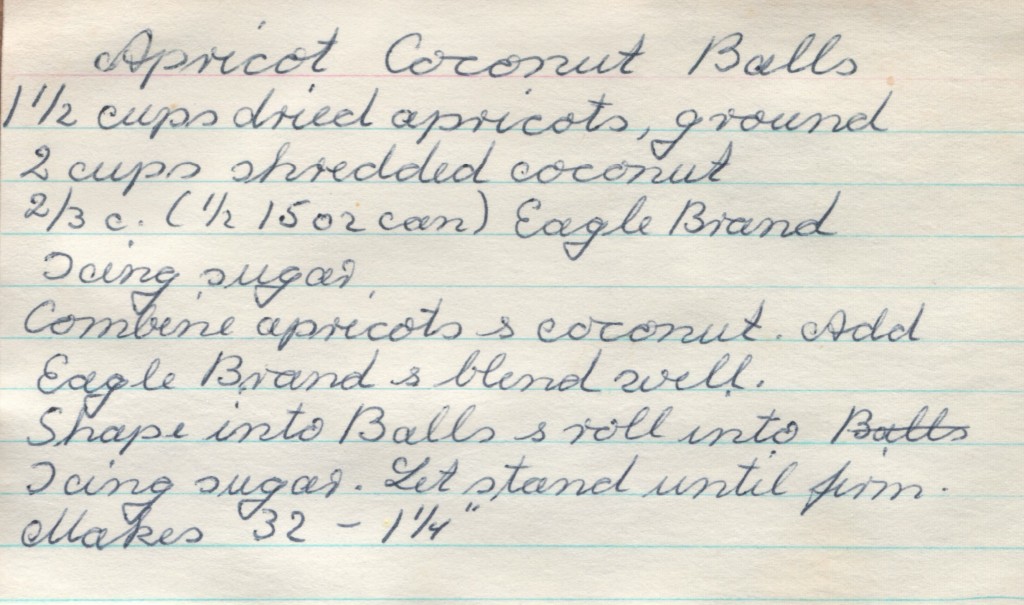 Apricot Coconut Balls
1 1/2 cups dried apricots, ground
2 cups shredded coconut
2/3 c. (1/2 15 oz can) Eagle Brand
Icing sugar.
Combine apricots & coconut. Add
Eagle Brand & blend well.
Shape into Balls & roll into Balls
Icing sugar. Let stand until firm.
Makes 32 - 1 1/4"